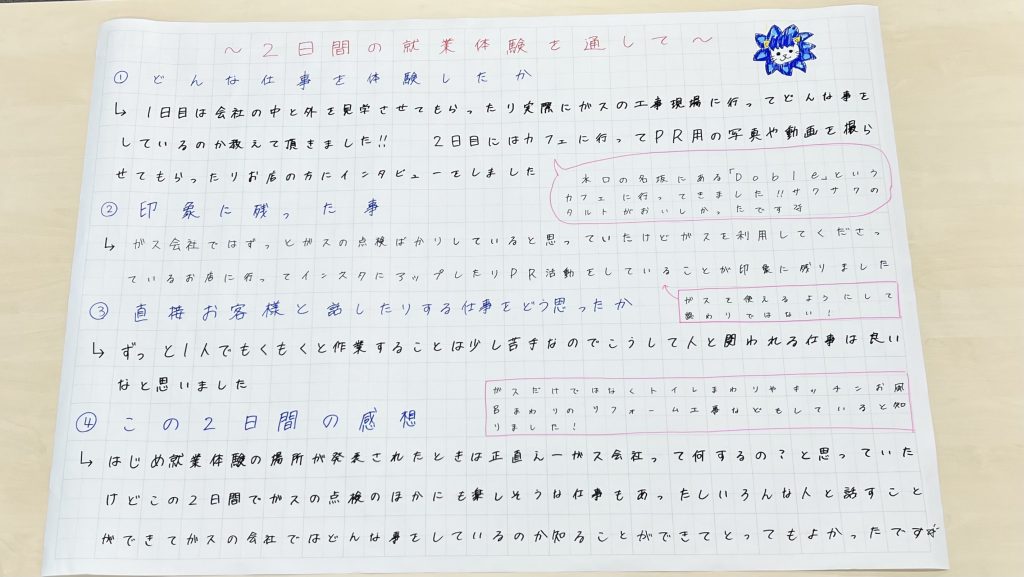 ～２日間の就業体験を通して～
① どんな仕事を体験したか
↳ 1日目は会社の中と外を見学させてもらったり実際にガスの工事現場に行ってどんな事を
しているのか教えて頂きました!! 2日目にはカフェに行ってPR用の写真や動画を撮ら
せてもらったりお店の方にインタビューをしました
水口の名坂にある「Doble」という
カフェに行ってきました!!サクサクの
タルトがおいしかったです
② 印象に残った事
↳ ガス会社ではずっとガスの点検ばかりしていると思っていたけどガスを利用してくださっ
ているお店に行ってインスタにアップしたりPR活動をしていることが印象に残りました
ガスを使えるようにして
終わりではない!
③ 直接お客様と話したりする仕事をどう思ったか
↳ ずっと1人でもくもくと作業することは少し苦手なのでこうして人と関われる仕事は良い
なと思いました
ガスだけではなくトイレまわりやキッチンお風
呂まわりのリフォーム工事などもしていると知
りました!
④ この２日間の感想
↳ はじめ就業体験の場所が発表されたときは正直えーガス会社って何するの?と思っていた
けどこの2日間でガスの点検のほかにも楽しそうな仕事もあったしいろんな人と話すこと
ができてガスの会社ではどんな事をしているのか知ることができてとってもよかったです